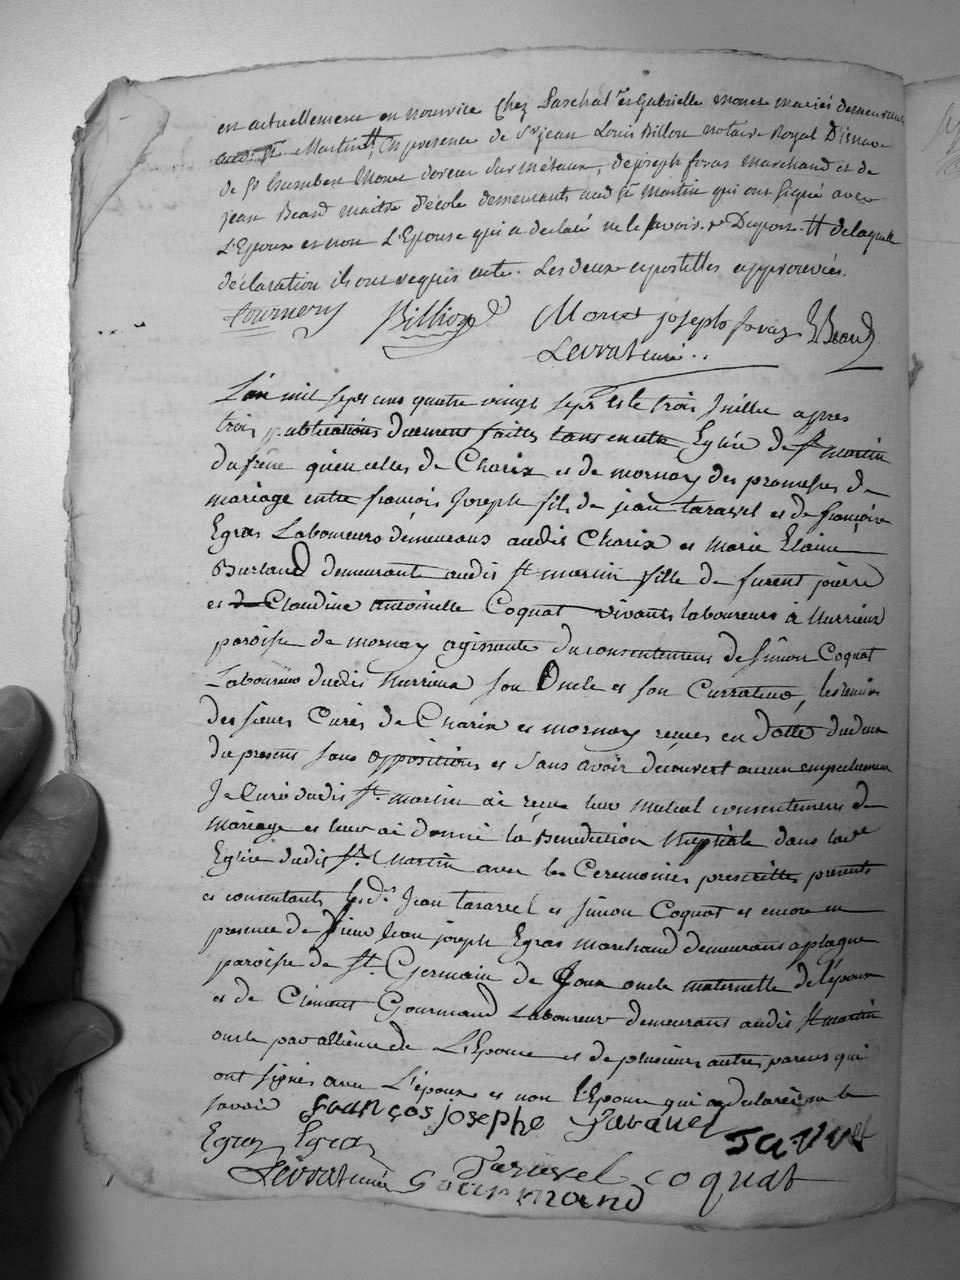 est actuellement en nourrice chez Paschal et Gabrielle monet mariés demeurants
audit St Martin # En presence de Sr jean Louis Billion notaire Royal D'isnave
de Sr humbert Monet doreur sur métaux, de joseph foras marchand et de
jean Beard maitre d'école demeurants aud St martin qui ont signé avec
L'Epoux et non L'Epouse qui a declaré ne le savoir. # de laquelle
déclaration ils ont requis acte. Les deux apostilles approuvées.
fournery Billion Monet joseph foras J Beard
Levrat curé
L'an mil sept cens quatre vingt sept et le trois Juillet apres
trois publications duement faittes tans en cette Eglise de St martin
du frene qu'en celles de Charix et de mornay des promesses de
mariage entre françois Joseph fils de jean taravel et de françoise
Egras Laboureurs demeurans audit Charix et marie Elaine
Burland demeurante audit St martin fille de furent pierre
et Claudine antoinette Coquat vivants laboureurs à hurrieux
paroisse de mornay agissante du consentement de Simon Coquat
Laboureur dudit hurrieux son Oncle et son Currateur, les remises
des sieurs Curés de Charix et mornay reçues en datte du deux
du present sans oppositions et sans avoir découvert aucun empechement
Je Curé dudit St. martin ai reçu leur mutuel consentement de
mariage et leur ai donné la Benediction Nuptiale dans lade
Eglise dudit St. Martin avec les Ceremonies prescrittes presents
et consentants lesds. Jean taravel et simon Coquat et encore en
presence de Sieur Jean joseph Egras marchand demeurans a plagne
paroisse de St. Germain de Joux oncle maternelle de l'époux
et de Clément Gourmand Laboureur demeurans audit St martin
oncle par alliance de L'Epouse et de plusieurs autres parens qui
ont signés avec L'époux et non l'Epouse qui a declaré ne le
savoir françois josephe taravel
Egraz Egraz
Levrat curé Taravel coquat
Gourmand